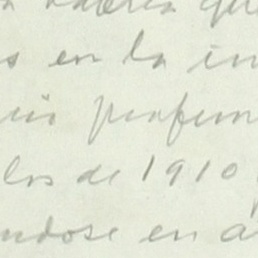 habría que
s en la in
profun
los de 1910
ndose en a